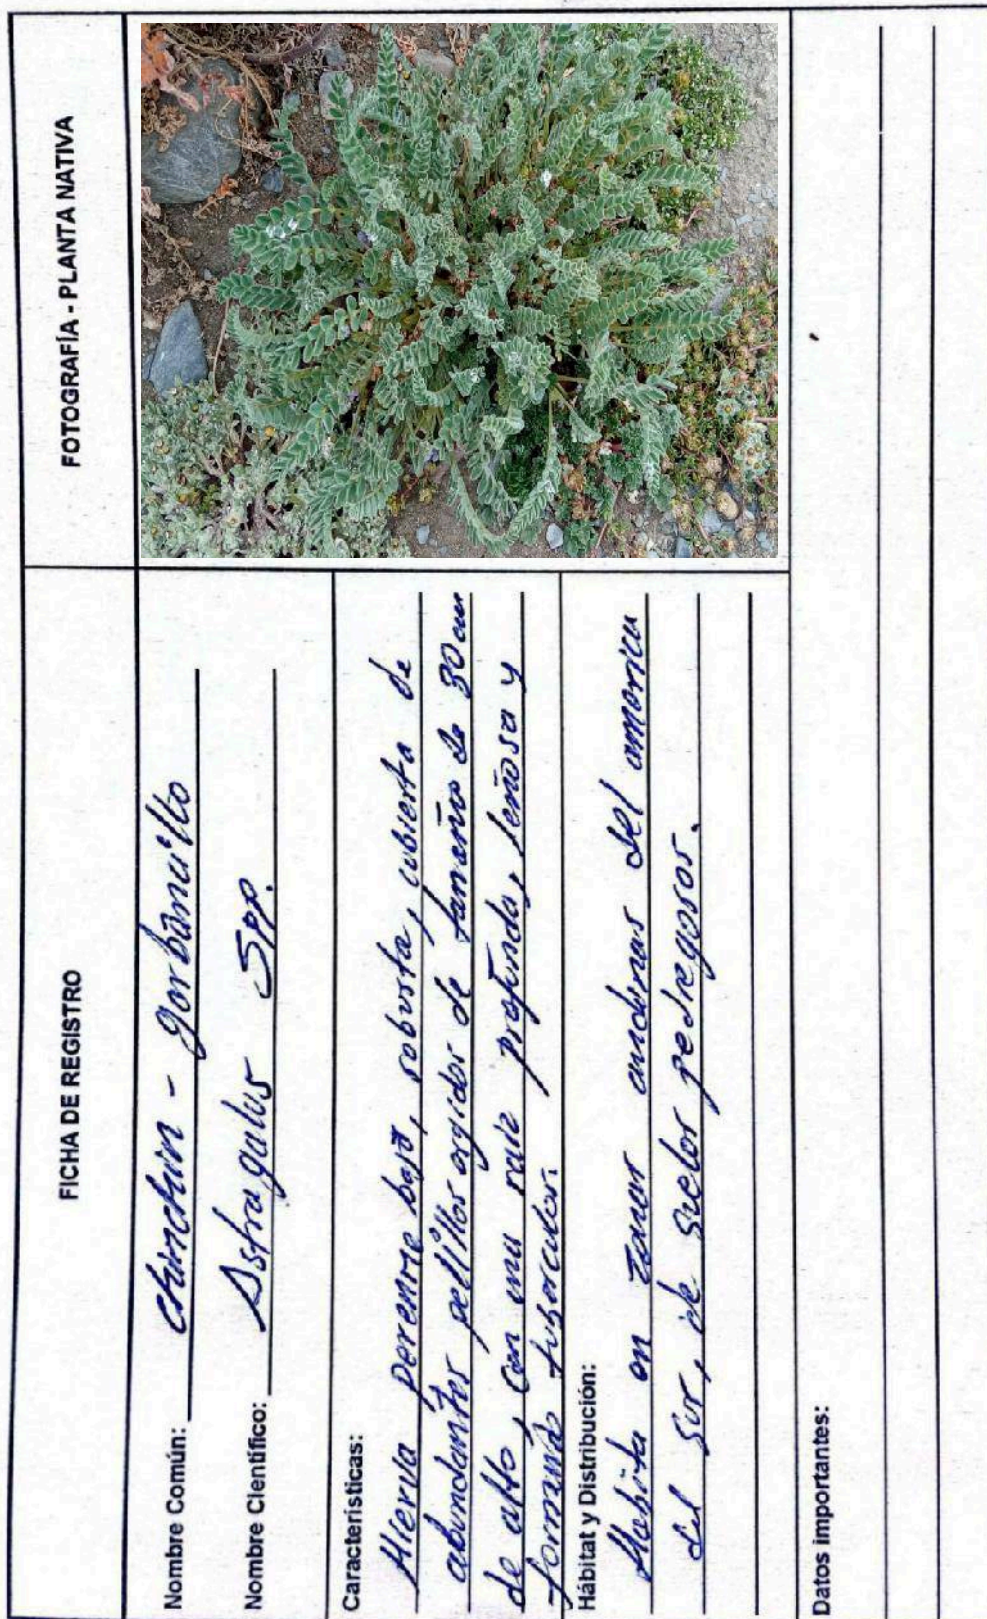 FICHA DE REGISTRO
FOTOGRAFÍA - PLANTA NATIVA
Nombre Común: chinchin - garbancillo
Nombre Científico: Astragalus Spp.
Características:
Hierva perenne bajo, robusta, cubierta de
abundantes pelillos rigidos de tamaño de 30 cm
de alto, con una raíz profunda, leñosa y
forma tuberculos.
Hábitat y Distribución:
Habita en zonas andinas del america
del sur, de suelos pedregosos.
Datos importantes: